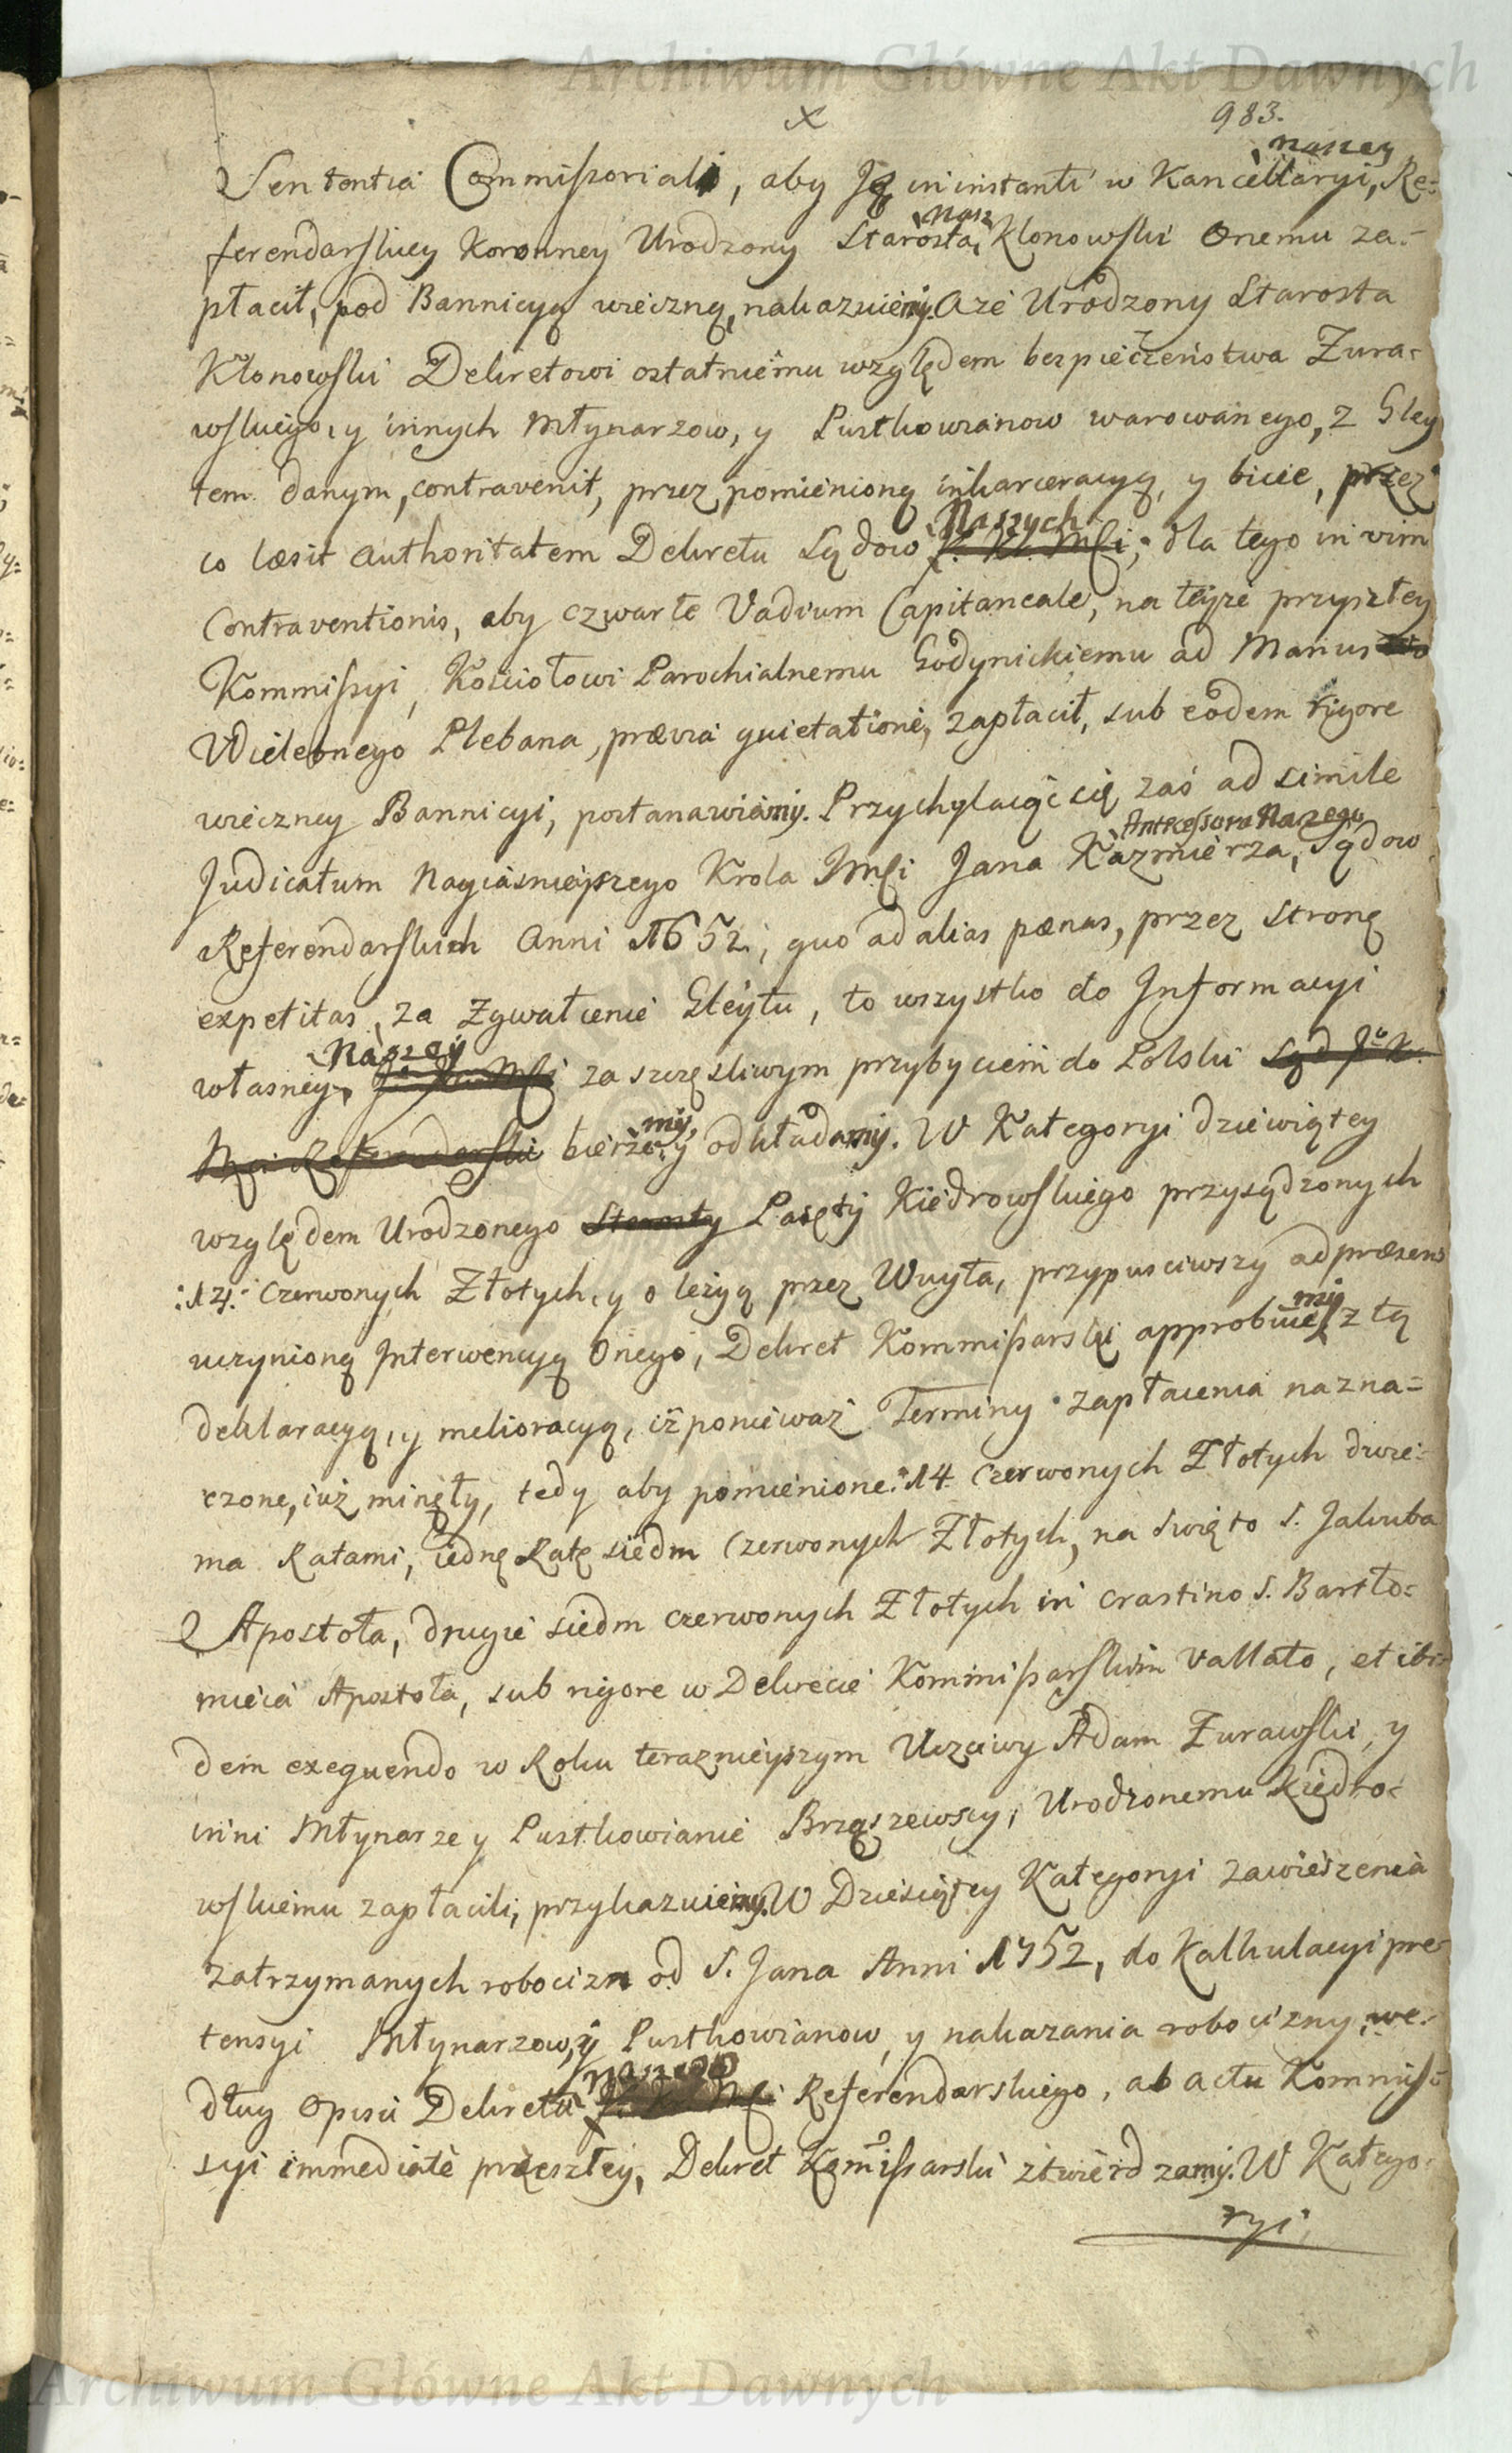 Archiwum Główne Akt Dawnych
x
983.
naszey
Sententia Commissoriali, aby Ją in instanti w Kancellaryi, Re=
nasz
ferendarskiey Koronney Urodzony Starosta Klonowski Onemu za=
płacił, pod Bannicyą wieczną, nakazuiemy. Aże Urodzony Starosta
Klonowski Dekretowi ostatniemu względem bezpieczeństwa Zura=
wskiego, y innych Młynarzow, y Pustkowianow warowanego, z Gley
tem danym, contravenit, przez pomienioną inkarceracyą, y bicie, przez
co læsit authoritatem Dekretu Sądow
Naszych
J. K. Mści; dla tego in vim
Contraventionis, aby czwarte Vadium Capitaneale, na teyże przyszłey
Kommissyi, Kościołowi Parochialnemu Godynickiemu ad Manus
Wielebnego Plebana, prævia quietatione, zapłacił, sub eodem rigore
wieczney Bannicyi, postanawiamy. Przychylaiąc się zaś ad simile
Antecessora Naszego
Judicatum Nayiaśnieyszego Krola JMści Jana Kazmierza, Sądow
Referendarskich Anni 1652, quo ad alias pænas, przez stronę
expetitas, za zgwałcenie Gleytu, to wszystko do Informacyi
Naszey
własney, J. K. Mści za szczęśliwym przybyciem do Polski Sąd J. K.
my,
Mści Referendarski bierze y odkładamy. W Kategoryi dziewiątey
względem Urodzonego Starosty Pasęty Kiedrowskiego przysądzonych
:14: Czerwonych Złotych, y o leżyą przez Wuyta, przypuściwszy ad præsens
my
uczynioną Interwencyą Onego, Dekret Kommissarski approbuie z tą
deklaracyą, y melioracyą, iż ponieważ Terminy zapłacenia nazna=
czone, iuż minęły, tedy aby pomienione :14 Czerwonych Złotych dwie=
ma Ratami, iednę Ratę siedm Czerwonych Złotych, na święto S. Jakuba
Apostoła, drugie siedm czerwonych Złotych in crastino S. Bartło=
mieia Apostoła, sub rigore w Dekrecie Kommissarskim vallato, et ibi=
dem exequendo w Roku teraznieyszym Uczciwy Adam Zurawski, y
inni Młynarze y Pustkowianie Brząszewscy, Urodzonemu Kiedro=
wskiemu zapłacili, przykazuiemy. W Dziesiątey Kategoryi zawieszenia
zatrzymanych robocizn od S. Jana Anni 1752, do Kalkulacyi pre=
tensyi Młynarzow, y Pustkowianow, y nakazania robocizny, we=
naszego
dług Opisu Dekretu J. K. Mści Referendarskiego, ab actu Kommis=
syi immediate przeszłey, Dekret Kommissarski ztwierdzamy. W Katego=
ryi
Archiwum Główne Akt Dawnych